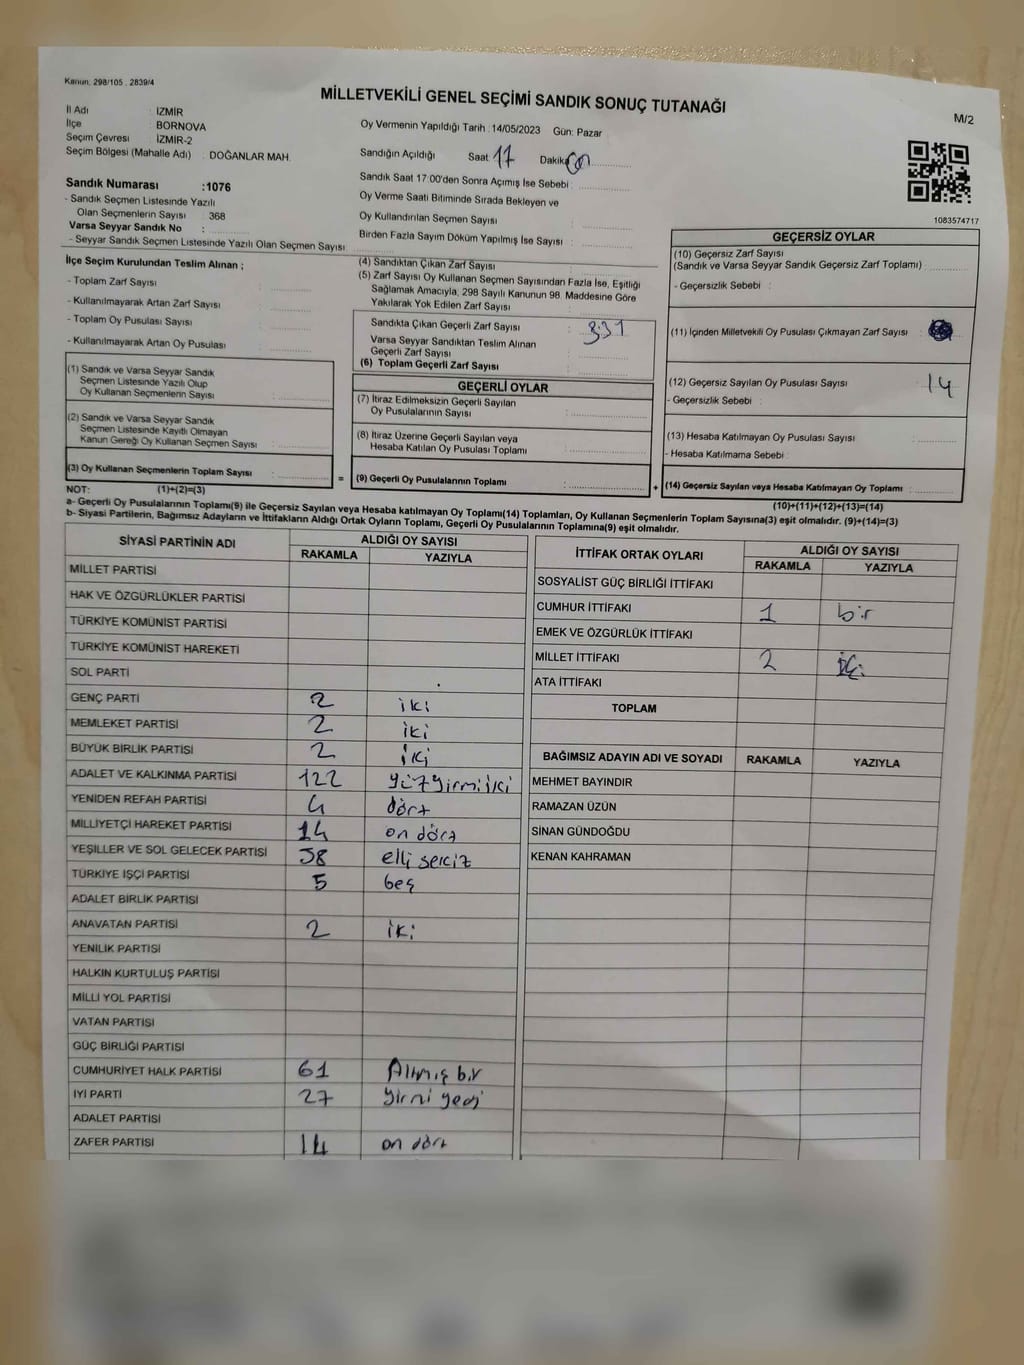 Kanun: 298/105 , 2839/4
MİLLETVEKİLİ GENEL SEÇİMİ SANDIK SONUÇ TUTANAĞI
M/2
İl Adı : İZMİR
İlçe BORNOVA
Seçim Çevresi İZMİR-2
Seçim Bölgesi (Mahalle Adı) : DOĞANLAR MAH.
Oy Vermenin Yapıldığı Tarih :14/05/2023 Gün: Pazar
Sandığın Açıldığı Saat: 17 Dakika
Sandık Saat 17:00'den Sonra Açımış İse Sebebi :
Oy Verme Saati Bitiminde Sırada Bekleyen ve
Oy Kullandırılan Seçmen Sayısı :
Birden Fazla Sayım Döküm Yapılmış İse Sayısı :
1083574717
Sandık Numarası :1076
- Sandık Seçmen Listesinde Yazılı
Olan Seçmenlerin Sayısı : 368
Varsa Seyyar Sandık No :
- Seyyar Sandık Seçmen Listesinde Yazılı Olan Seçmen Sayısı:
İlçe Seçim Kurulundan Teslim Alınan ;
- Toplam Zarf Sayısı :
- Kullanılmayarak Artan Zarf Sayısı :
- Toplam Oy Pusulası Sayısı :
- Kullanılmayarak Artan Oy Pusulası :
(1) Sandık ve Varsa Seyyar Sandık
Seçmen Listesinde Yazılı Olup
Oy Kullanan Seçmenlerin Sayısı :
(2) Sandık ve Varsa Seyyar Sandık
Seçmen Listesinde Kayıtlı Olmayan
Kanun Gereği Oy Kullanan Seçmen Sayısı :
(3) Oy Kullanan Seçmenlerin Toplam Sayısı :
(4) Sandıktan Çıkan Zarf Sayısı :
(5) Zarf Sayısı Oy Kullanan Seçmen Sayısından Fazla İse, Eşitliği
Sağlamak Amacıyla, 298 Sayılı Kanunun 98. Maddesine Göre
Yakılarak Yok Edilen Zarf Sayısı :
Sandıkta Çıkan Geçerli Zarf Sayısı : 331
Varsa Seyyar Sandıktan Teslim Alınan
Geçerli Zarf Sayısı :
(6) Toplam Geçerli Zarf Sayısı :
GEÇERLİ OYLAR
(7) İtiraz Edilmeksizin Geçerli Sayılan
Oy Pusulalarının Sayısı :
(8) İtiraz Üzerine Geçerli Sayılan veya
Hesaba Katılan Oy Pusulası Toplamı :
= (9) Geçerli Oy Pusulalarının Toplamı : +
GEÇERSİZ OYLAR
(10) Geçersiz Zarf Sayısı
(Sandık ve Varsa Seyyar Sandık Geçersiz Zarf Toplamı) :
- Geçersizlik Sebebi :
(11) İçinden Milletvekili Oy Pusulası Çıkmayan Zarf Sayısı :
(12) Geçersiz Sayılan Oy Pusulası Sayısı : 14
- Geçersizlik Sebebi :
(13) Hesaba Katılmayan Oy Pusulası Sayısı :
- Hesaba Katılmama Sebebi :
(14) Geçersiz Sayılan veya Hesaba Katılmayan Oy Toplamı :
NOT: (1)+(2)=(3)
(10)+(11)+(12)+(13)=(14)
a- Geçerli Oy Pusulalarının Toplamı(9) ile Geçersiz Sayılan veya Hesaba katılmayan Oy Toplamı(14) Toplamları, Oy Kullanan Seçmenlerin Toplam Sayısına(3) eşit olmalıdır. (9)+(14)=(3)
b- Siyasi Partilerin, Bağımsız Adayların ve İttifakların Aldığı Ortak Oyların Toplamı, Geçerli Oy Pusulalarının Toplamına(9) eşit olmalıdır.
SİYASİ PARTİNİN ADI ALDIĞI OY SAYISI
RAKAMLA YAZIYLA
MİLLET PARTİSİ
HAK VE ÖZGÜRLÜKLER PARTİSİ
TÜRKİYE KOMÜNİST PARTİSİ
TÜRKİYE KOMÜNİST HAREKETİ
SOL PARTİ
GENÇ PARTİ 2 iki
MEMLEKET PARTİSİ 2 iki
BÜYÜK BİRLİK PARTİSİ 2 iki
ADALET VE KALKINMA PARTİSİ 122 yüzyirmiiki
YENİDEN REFAH PARTİSİ 4 dört
MİLLİYETÇİ HAREKET PARTİSİ 14 on dört
YEŞİLLER VE SOL GELECEK PARTİSİ 58 elli sekiz
TÜRKİYE İŞÇİ PARTİSİ 5 beş
ADALET BİRLİK PARTİSİ
ANAVATAN PARTİSİ 2 iki
YENİLİK PARTİSİ
HALKIN KURTULUŞ PARTİSİ
MİLLİ YOL PARTİSİ
VATAN PARTİSİ
GÜÇ BİRLİĞİ PARTİSİ
CUMHURİYET HALK PARTİSİ 61 Altmış bir
İYİ PARTİ 27 yirmi yedi
ADALET PARTİSİ
ZAFER PARTİSİ 14 on dört
İTTİFAK ORTAK OYLARI ALDIĞI OY SAYISI
RAKAMLA YAZIYLA
SOSYALİST GÜÇ BİRLİĞİ İTTİFAKI
CUMHUR İTTİFAKI 1 bir
EMEK VE ÖZGÜRLÜK İTTİFAKI
MİLLET İTTİFAKI 2
ATA İTTİFAKI
TOPLAM
BAĞIMSIZ ADAYIN ADI VE SOYADI RAKAMLA YAZIYLA
MEHMET BAYINDIR
RAMAZAN ÜZÜN
SİNAN GÜNDOĞDU
KENAN KAHRAMAN